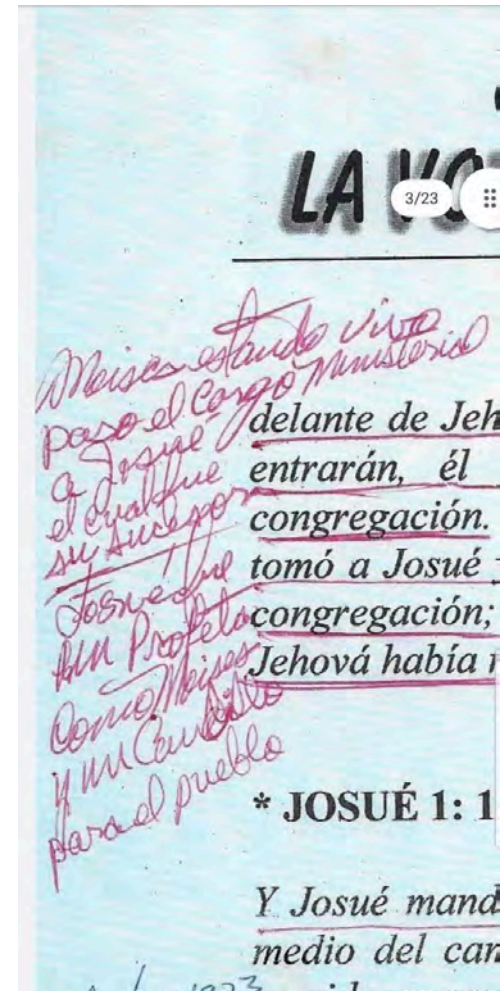 LA VO
3/23
Moises estando vivo
paso el Cargo Ministerial
a Josue
el cual fue
su sucesor
Josue fue
un Profeta
Como Moises
y un Caudillo
para el pueblo
delante de Jeh
entrarán, él
congregación.
tomó a Josué
congregación;
Jehová había
* JOSUÉ 1: 1
Y Josué mand
medio del can
1973